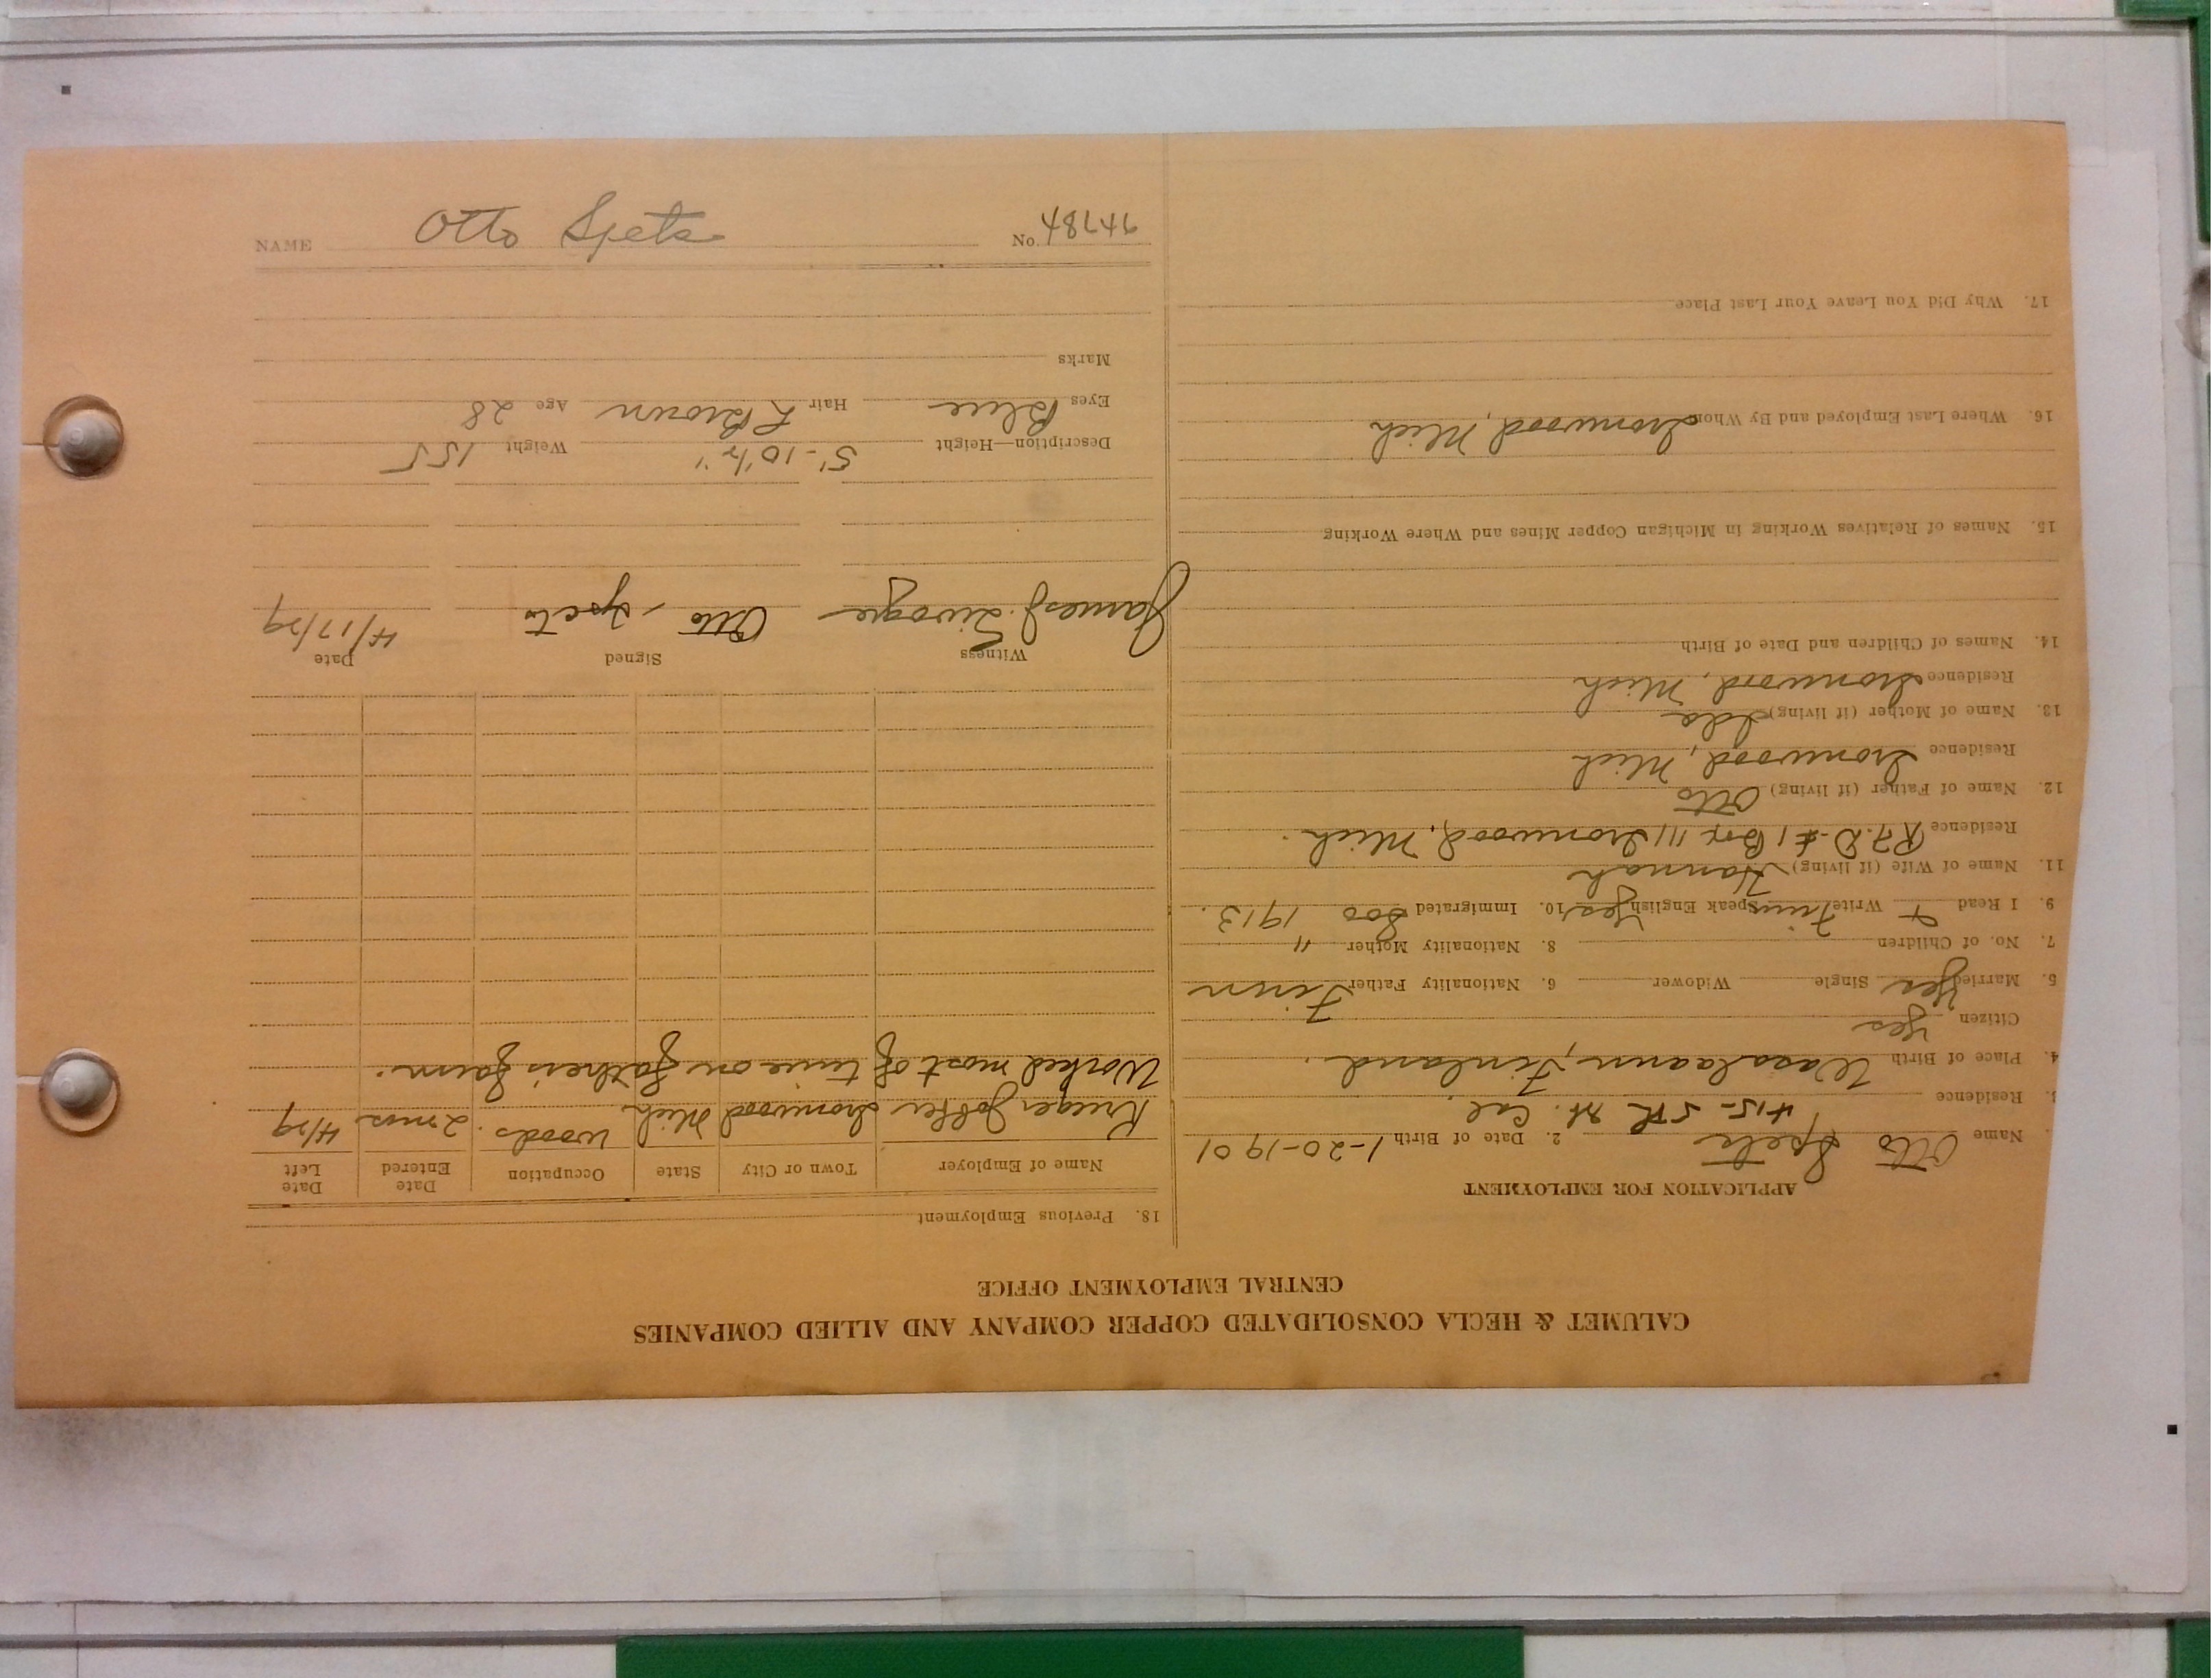 CALUMET & HECLA CONSOLIDATED COPPER COMPANY AND ALLIED COMPANIES
CENTRAL EMPLOYMENT OFFICE
APPLICATION FOR EMPLOYMENT
Name Otto Speta 2. Date of Birth 1-20-1901
3. Residence 415-5th St. Cal.
4. Place of Birth Finland.
Citizen Yes
5. Married Yes Single Widower 6. Nationality Father Finn
7. No. of Children 8. Nationality Mother "
9. I Read + Write Finn Speak English Yes 10. Immigrated Soo 1913.
11. Name of Wife (if living) Hannah
Residence R.F.D. #1 Box 111 Ironwood, Mich.
12. Name of Father (if living) Otto
Residence Ironwood, Mich
13. Name of Mother (if living) Ida
Residence Ironwood, Mich
14. Names of Children and Date of Birth
15. Names of Relatives Working in Michigan Copper Mines and Where Working
16. Where Last Employed and By Whom Ironwood, Mich
17. Why Did You Leave Your Last Place
18. Previous Employment
Name of Employer Town or City State Occupation Date Entered Date Left
Krueger Jobber Ironwood Mich woods. 2 mos 4/29
Worked most of time on father's farm.
Witness Signed Date
James J. Otto Speta 4/17/29
Description—Height 5'-10½" Weight 155
Eyes Blue Hair L Brown Age 28
Marks
NAME Otto Speta No. 48746